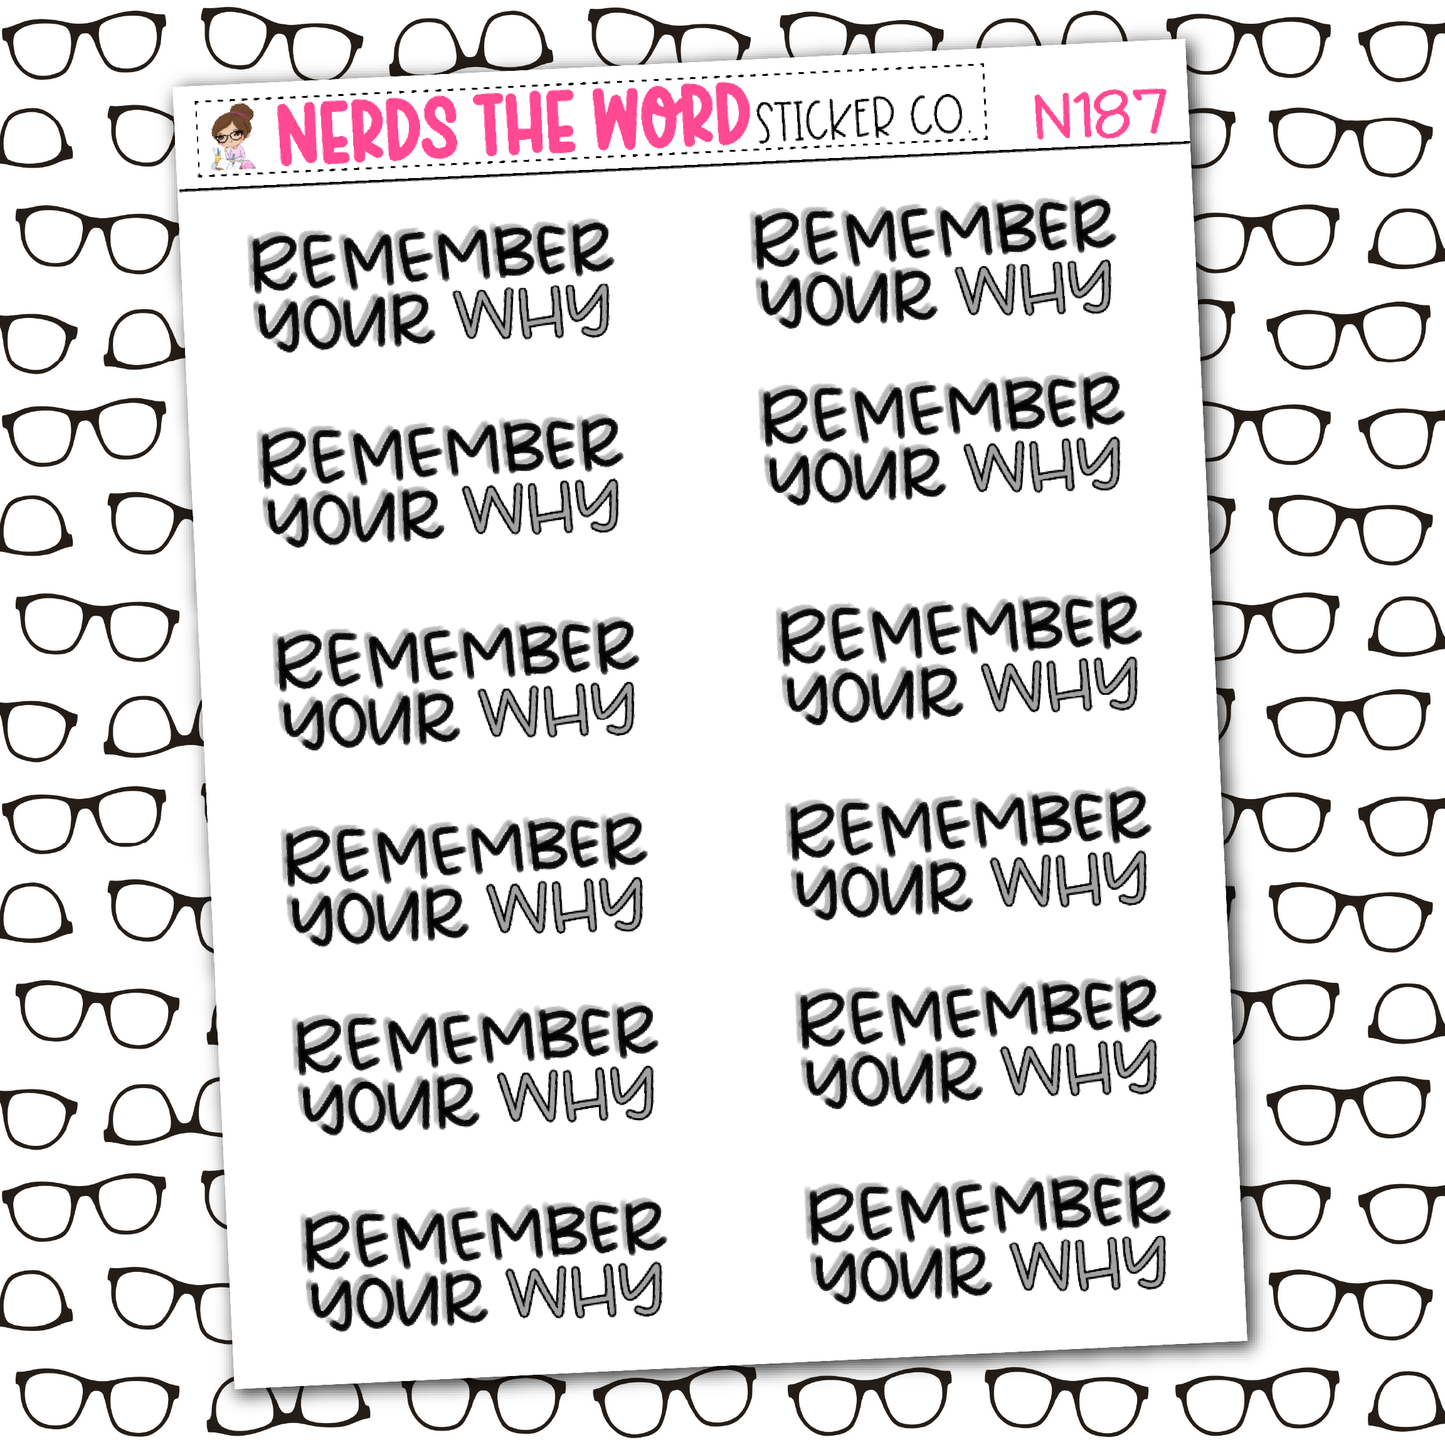 NERDS THE WORD STICKER CO. N187
REMEMBER
YOUR WHY
REMEMBER
YOUR WHY
REMEMBER
YOUR WHY
REMEMBER
YOUR WHY
REMEMBER
YOUR WHY
REMEMBER
YOUR WHY
REMEMBER
YOUR WHY
REMEMBER
YOUR WHY
REMEMBER
YOUR WHY
REMEMBER
YOUR WHY
REMEMBER
YOUR WHY
REMEMBER
YOUR WHY